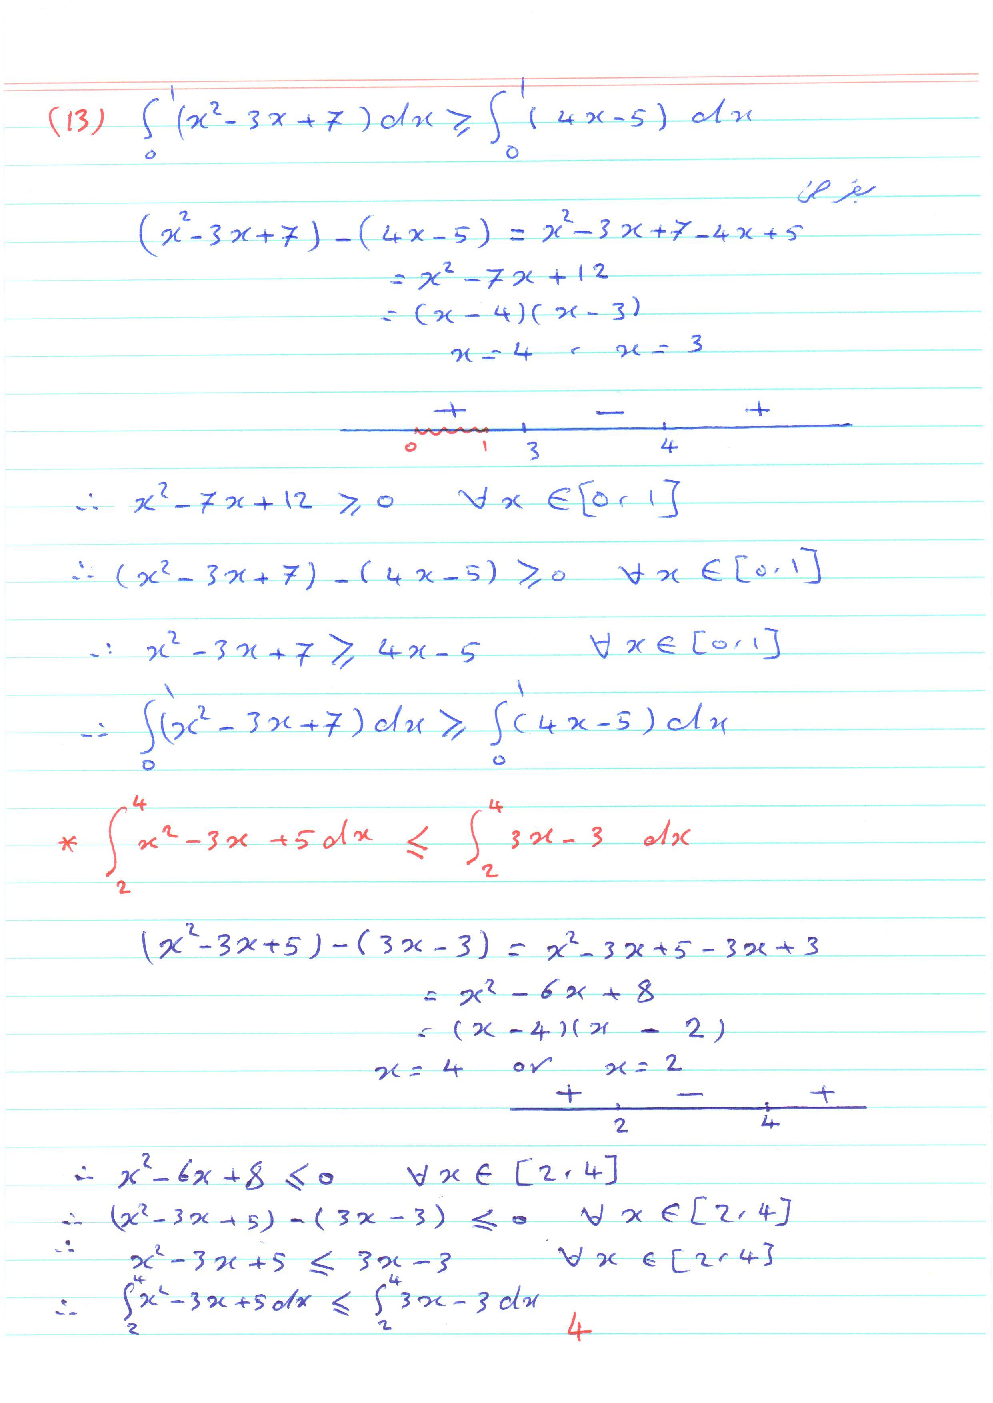 (13) ∫₀¹ (x² - 3x + 7) dx ≥ ∫₀¹ (4x - 5) dx
بفرض
(x² - 3x + 7) - (4x - 5) = x² - 3x + 7 - 4x + 5
= x² - 7x + 12
= (x - 4)(x - 3)
x = 4 ، x = 3
+ - +
0 1 3 4
∴ x² - 7x + 12 ≥ 0 ∀ x ∈ [0، 1]
∴ (x² - 3x + 7) - (4x - 5) ≥ 0 ∀ x ∈ [0، 1]
∴ x² - 3x + 7 ≥ 4x - 5 ∀ x ∈ [0، 1]
∴ ∫₀¹ (x² - 3x + 7) dx ≥ ∫₀¹ (4x - 5) dx
* ∫₂⁴ x² - 3x + 5 dx ≤ ∫₂⁴ 3x - 3 dx
(x² - 3x + 5) - (3x - 3) = x² - 3x + 5 - 3x + 3
= x² - 6x + 8
= (x - 4)(x - 2)
x = 4 or x = 2
+ - +
2 4
∴ x² - 6x + 8 ≤ 0 ∀ x ∈ [2، 4]
∴ (x² - 3x + 5) - (3x - 3) ≤ 0 ∀ x ∈ [2، 4]
∴ x² - 3x + 5 ≤ 3x - 3 ∀ x ∈ [2، 4]
∴ ∫₂⁴ x² - 3x + 5 dx ≤ ∫₂⁴ 3x - 3 dx
4